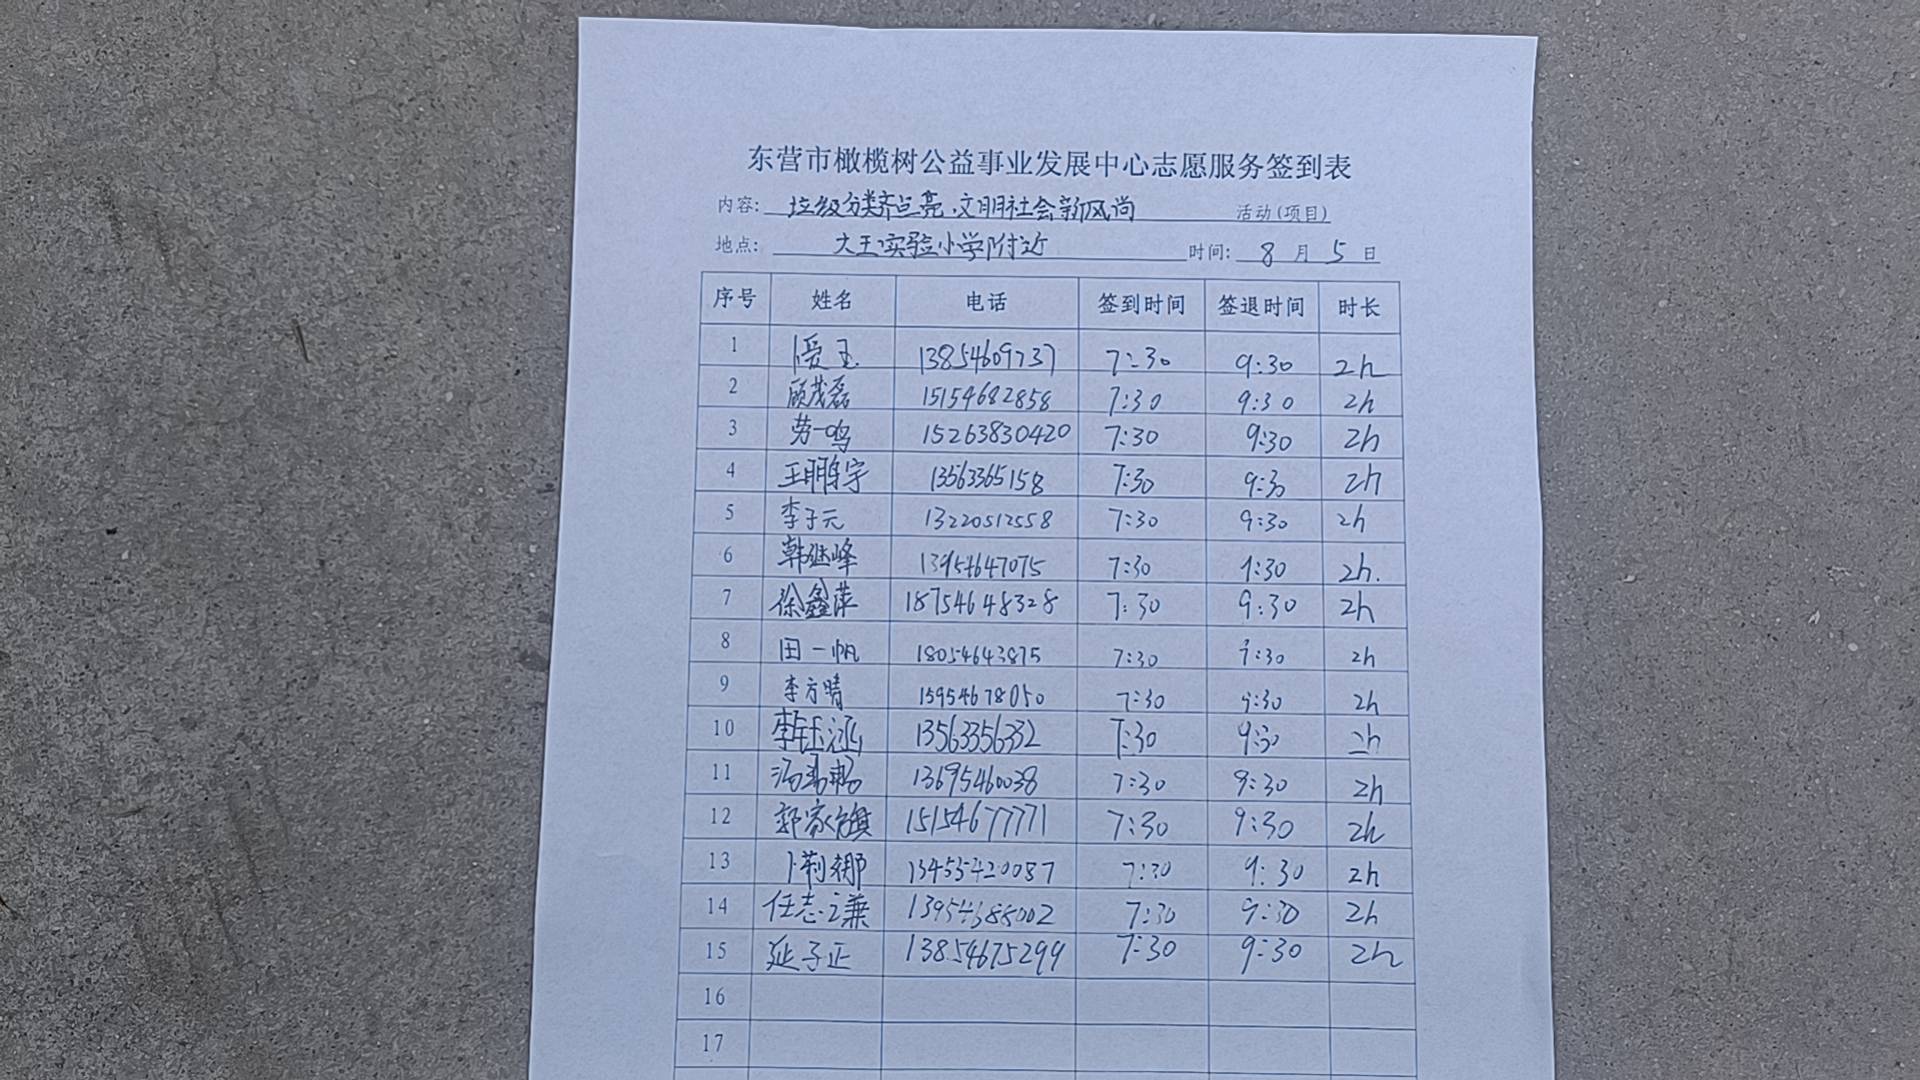 东营市橄榄树公益事业发展中心志愿服务签到表
内容: 垃圾分类齐点亮.文明社会新风尚 活动(项目)
地点: 大王实验小学附近 时间: 8 月 5 日
序号 姓名 电话 签到时间 签退时间 时长
1 玉 13854609737 7:30 9:30 2h
2 顾茂磊 15154682858 7:30 9:30 2h
3 劳一鸣 15263830420 7:30 9:30 2h
4 王鹏宇 13563365158 7:30 9:30 2h
5 李子元 13220512558 7:30 9:30 2h
6 韩继峰 13954647075 7:30 9:30 2h.
7 徐鑫萍 18754648328 7:30 9:30 2h
8 田一帆 18054643875 7:30 9:30 2h
9 李方晴 15954678050 7:30 9:30 2h
10 李钰涵 13563356332 7:30 9:30 2h
11 13695460038 7:30 9:30 2h
12 郭家旗 15154677771 7:30 9:30 2h
13 13455420087 7:30 9:30 2h
14 任志谦 13954688002 7:30 9:30 2h
15 延子正 13854675299 7:30 9:30 2h
16
17